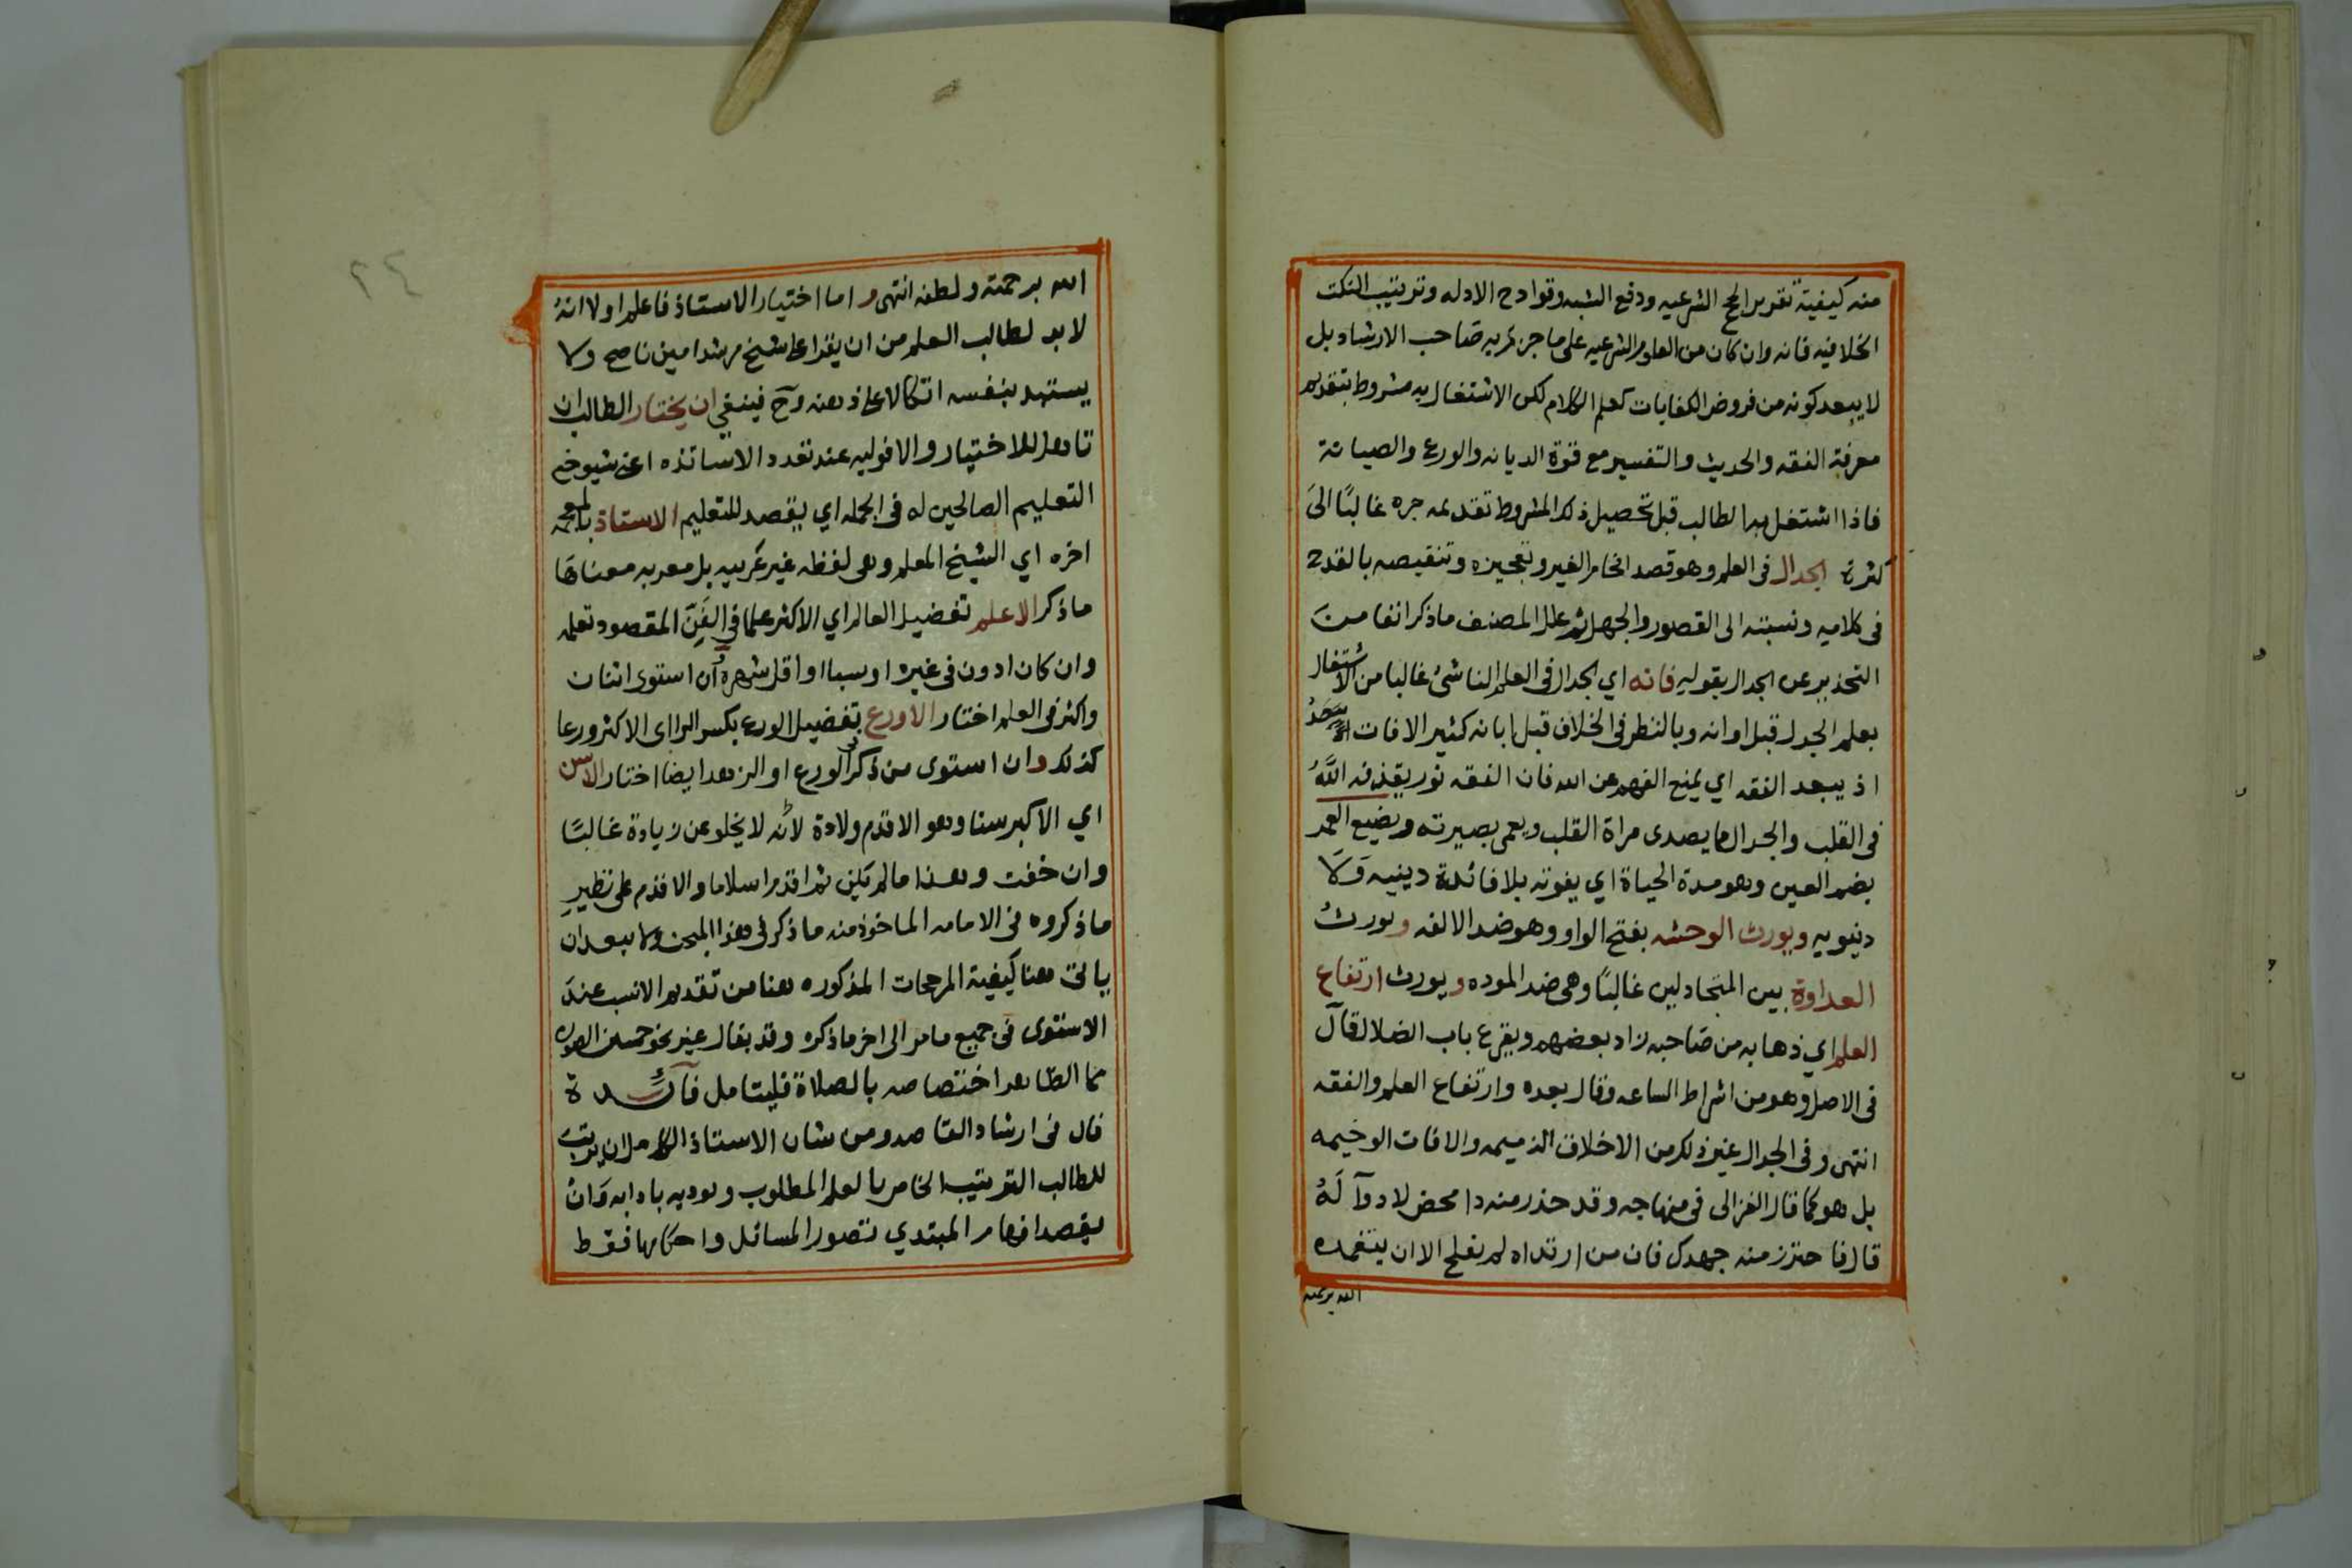 منه كيفية تقرير الحجج الشرعيه ودفع الشبه وقوادح الادله وترتيب النكت
الخلافيه فانه وان كان من العلوم الشرعيه على ما جرى عليه صاحب الارشاد بل
لا يبعد كونه من فروض الكفايات كعلم الكلام لكن الاشتغال به مشروط بتقديم
معرفة الفقه والحديث والتفسير مع قوة الديانه والورع والصيانة
فاذا اشتغل به الطالب قبل تحصيل ذلك المشروط تقديمه جره غالبًا الىَ
كثرة الجدال فى العلم وهو قصد افحام الغير وتعجيزه وتنقيصه بالقدح
فى كلامه ونسبته الى القصور والجهل ثم علل المصنف ما ذكر انفا منَ
التحذير عن الجدال بقوله فانه اي الجدال فى العلم الناشئ غالبا من الاشتغال
بعلم الجدل قبل اوانه وبالنظر فى الخلاف قبل ابانه كثير الافات
اذ يبعد الفقه اي يمنع الفهم عن الله فان الفقه نور يقذفه اللَّهُ
فى القلب والجدال مما يصدى مراة القلب ويعمى بصيرته ويضيع العمر
بضم العين وهو مدة الحياة اي يفوته بلا فائدة دينيه وَلَا
دنيويه ويورث الوحشه بفتح الواو وهو ضد الالفه ويورثُ
العداوة بين المتجادلين غالبًا وهى ضد الموده ويورث ارتفاع
العلم اي ذهابه من صاحبه زاد بعضهم ويقرع باب الضلال قآل
فى الاصل وهو من اشراط الساعه وقال بعده وارتفاع العلم والفقه
انتهى وفى الجدال غير ذلك من الاخلاق الذميمه والافات الوخيمه
بل هو كما قال الغزالى فى منهاجه وقد حذر منه داء محض لا دوآ لَهُ
قال فاحترز منه جهدك فان من ارتداه لم يفلح الا ان يتغمده
الله برحمته
٢٤
الله برحمته ولطفه انتهى واما اختيار الاستاذ فاعلم اولا انهُ
لا بد لطالب العلم من ان يقرا على شيخ مرشد امين ناصح ولا
يستبد بنفسه اتكالا على ذهنه وح فينبغي ان يختار الطالب ان
تاهل للاختيار والاولويه عند تعدد الاساتذه اعنى شيوخ
التعليم الصالحين له فى الجمله اي يقصد للتعليم الاستاذ بالمعجمه
اخره اي الشيخ المعلم وهى لفظه غير عربيه بل معربه معناها
ما ذكر الاعلم تفضيل العالم اي الاكثر علما في الفَنِّ المقصود تعلمه
وان كان ادون فى غيره او سنا او اقل شهره فان استوى اثنان
واكثر فى العلم اختار الاورع تفضيل الورع بكسر الراء اى الاكثر ورعا
كذلك وان استوى من ذكر فى الورع او الزهد ايضا اختار الاسن
اي الاكبر سنا وهو الاقدم ولادة لانه لا يخلو عن زيادة غالبًا
وان خفت وهذا ما لم يكن ثم اقدم اسلاما والا قدم على نظيرِ
ما ذكروه فى الامامه الماخوذ منه ما ذكر فى هذا المبحث ولا يبعد ان
ياتى هنا كيفية المرجحات المذكوره هنا من تقديم الانسب عندَ
الاستوى فى جميع ما مر الى اخر ما ذكره وقد يقال غير نحو حسن الصوره
مما الظاهر اختصاصه بالصلاة فليتامل فآئدة
قال فى ارشاد القاصد ومن شان الاستاذ الكامل ان يرتب
للطالب الترتيب الخاص بالعلم المطلوب ويودبه بادابه وَانْ
يقصد افهام المبتدي تصور المسائل واحكامها فقط